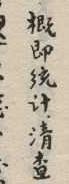 概即统计清查